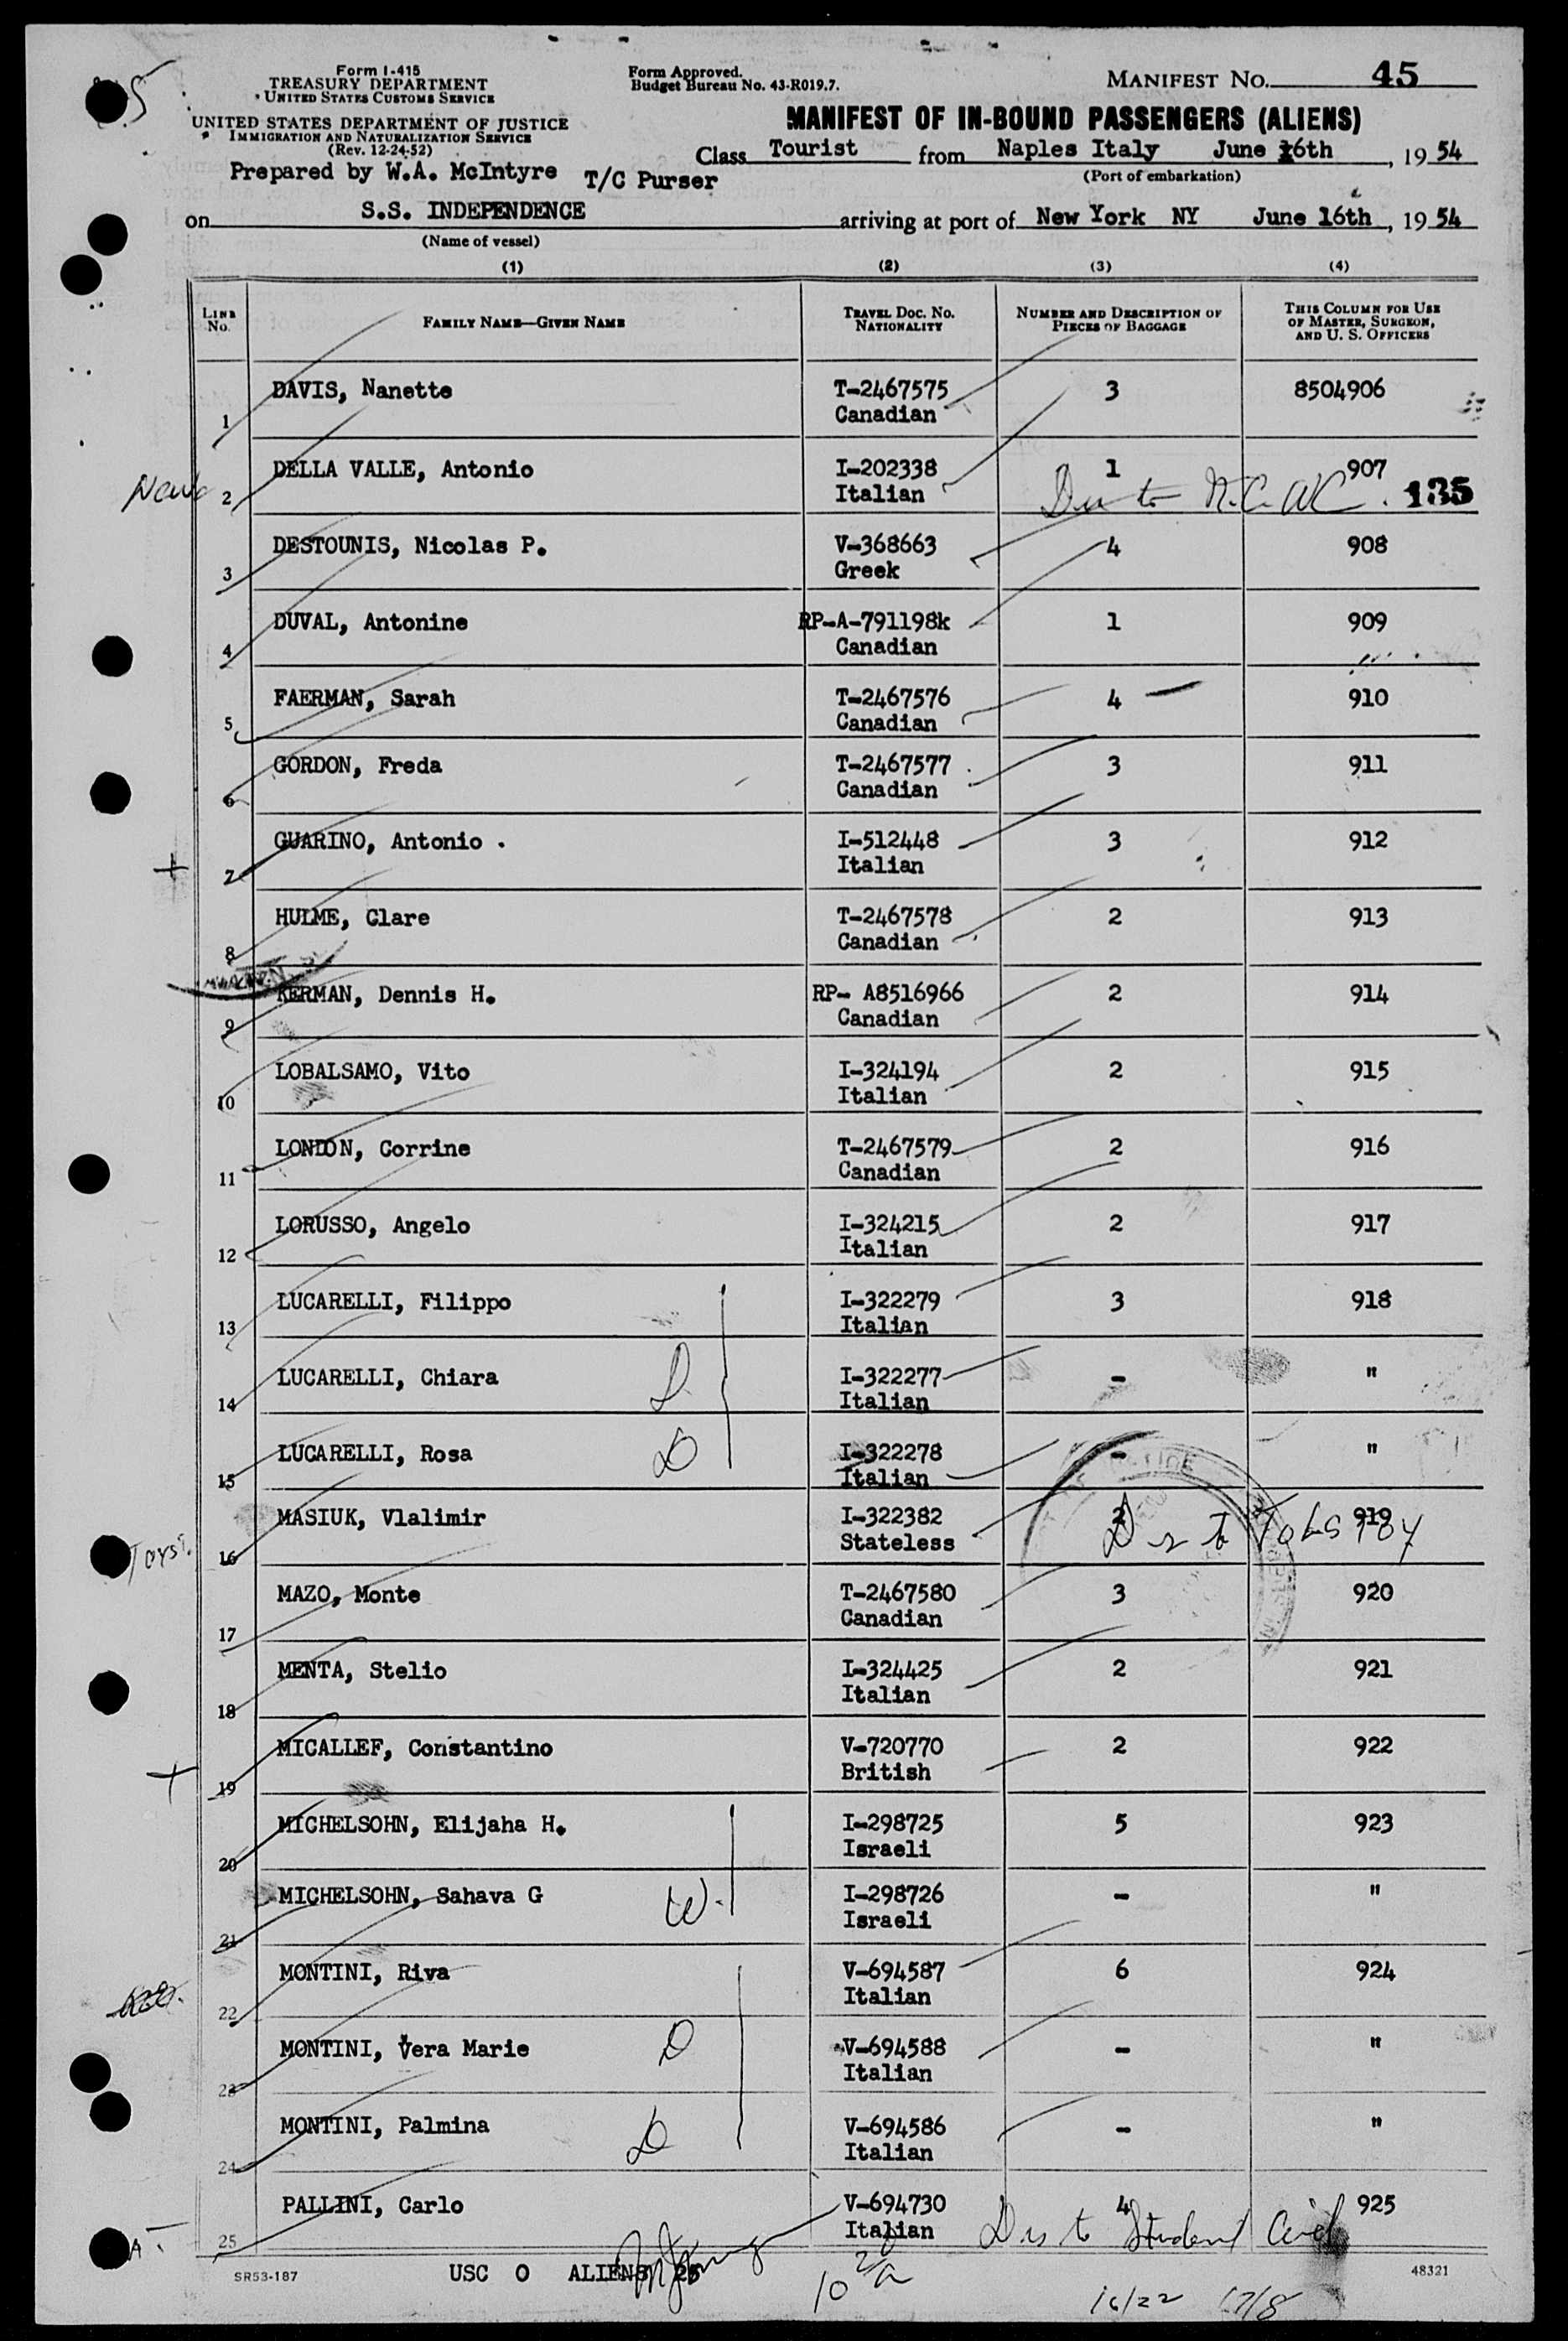 Form I-415
TREASURY DEPARTMENT
UNITED STATES CUSTOMS SERVICE
UNITED STATES DEPARTMENT OF JUSTICE
IMMIGRATION AND NATURALIZATION SERVICE
(Rev. 12-24-52)
Form Approved.
Budget Bureau No. 43-R019.7.
MANIFEST NO. 45
MANIFEST OF IN-BOUND PASSENGERS (ALIENS)
Class Tourist from Naples Italy June 16th, 19 54
(Port of embarkation)
Prepared by W.A. McIntyre T/C Purser
on S.S. INDEPENDENCE arriving at port of New York NY June 16th, 19 54
(Name of vessel)
(1) (2) (3) (4)
LINE NO. FAMILY NAME—GIVEN NAME TRAVEL DOC. NO. NATIONALITY NUMBER AND DESCRIPTION OF PIECES OF BAGGAGE THIS COLUMN FOR USE OF MASTER, SURGEON, AND U. S. OFFICERS
1 DAVIS, Nanette T-2467575 3 8504906
Canadian
2 DELLA VALLE, Antonio I-202338 1 907
Italian 135
3 DESTOUNIS, Nicolas P. V-368663 4 908
Greek
4 DUVAL, Antonine RP-A-791198k 1 909
Canadian
5 FAERMAN, Sarah T-2467576 4 910
Canadian
6 GORDON, Freda T-2467577 3 911
Canadian
7 GUARINO, Antonio I-512448 3 912
Italian
8 HULME, Clare T-2467578 2 913
Canadian
9 KERMAN, Dennis H. RP- A8516966 2 914
Canadian
10 LOBALSAMO, Vito I-324194 2 915
Italian
11 LONDON, Corrine T-2467579 2 916
Canadian
12 LORUSSO, Angelo I-324215 2 917
Italian
13 LUCARELLI, Filippo I-322279 3 918
Italian
14 LUCARELLI, Chiara D I-322277 - "
Italian
15 LUCARELLI, Rosa D I-322278 - "
Italian
16 MASIUK, Vlalimir I-322382 2 919
Stateless
17 MAZO, Monte T-2467580 3 920
Canadian
18 MENTA, Stelio I-324425 2 921
Italian
19 MICALLEF, Constantino V-720770 2 922
British
20 MICHELSOHN, Elijaha H. I-298725 5 923
Israeli
21 MICHELSOHN, Sahava G W. I-298726 - "
Israeli
22 MONTINI, Riva V-694587 6 924
Italian
23 MONTINI, Vera Marie D V-694588 - "
Italian
24 MONTINI, Palmina D V-694586 - "
Italian
25 PALLINI, Carlo V-694730 4 925
Italian Dis to Student Aid
SR53-187 USC 0 ALIENS 25 48321
16/22 17/8